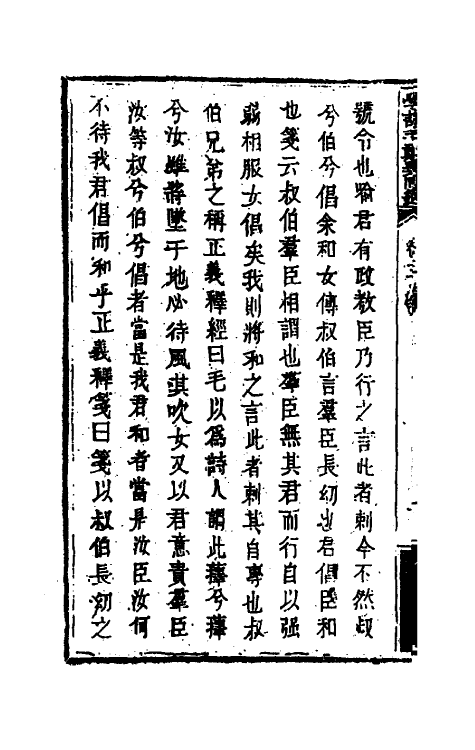 號令也喻君有政敎臣乃行之言此者刺今不然叔
兮伯兮倡余和女傳叔伯言羣臣長幼也君倡臣和
也箋云叔伯羣臣相謂也羣臣無其君而行自以强
弱相服女倡矣我則將和之言此者刺其自專也叔
伯兄弟之稱正義釋經曰毛以爲詩人謂此蘀兮蘀
兮汝雖將墜于地必待風其吹女又以君意責羣臣
汝等叔兮伯兮倡者當是我君和者當是汝臣汝何
不待我君倡而和乎正義釋箋曰箋以叔伯長幼之